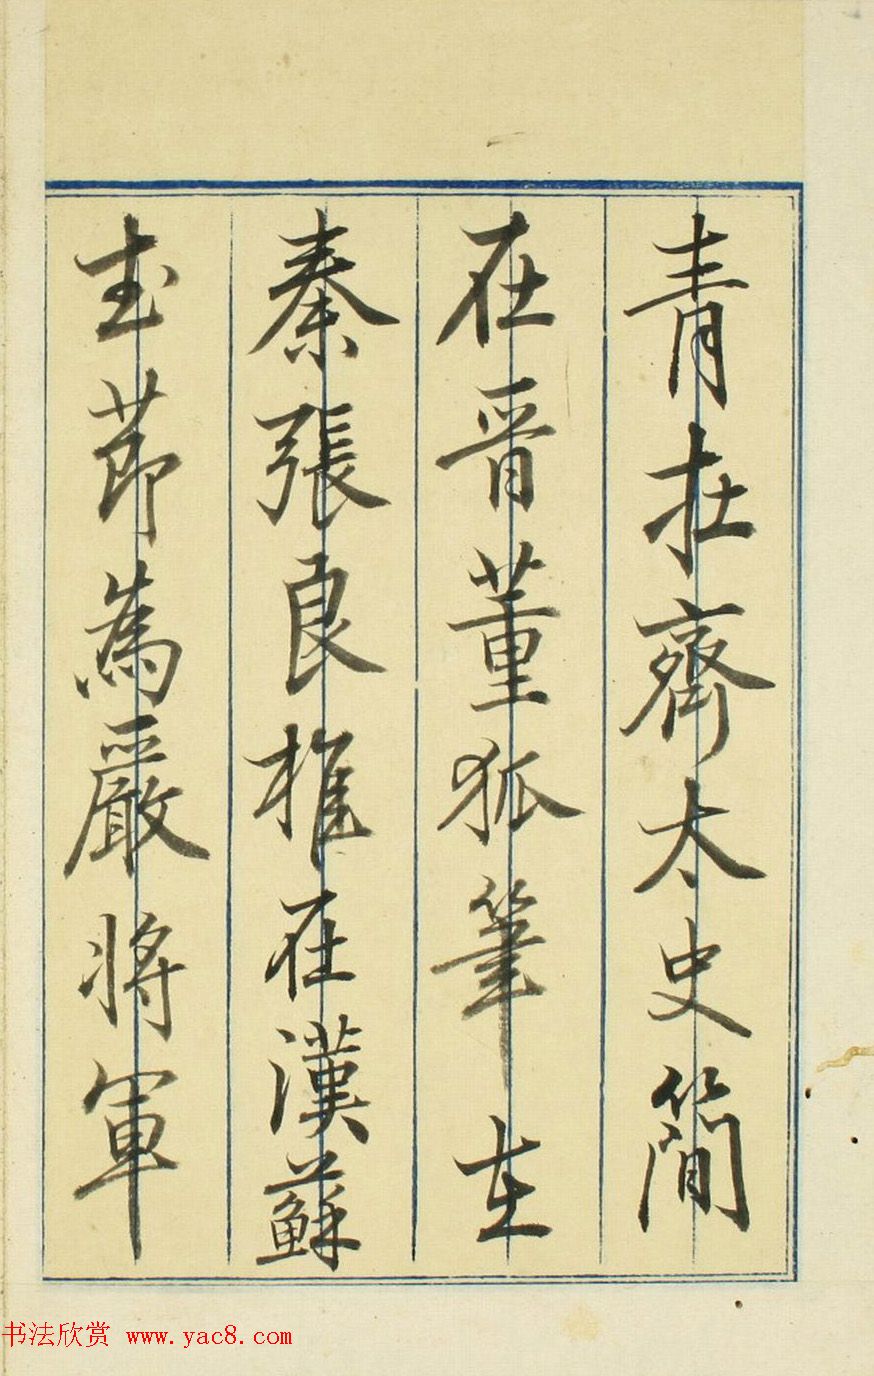 青在齊太史簡
在晉董狐筆在
秦張良椎在漢蘇
武節為嚴將軍
书法欣赏 www.yac8.com